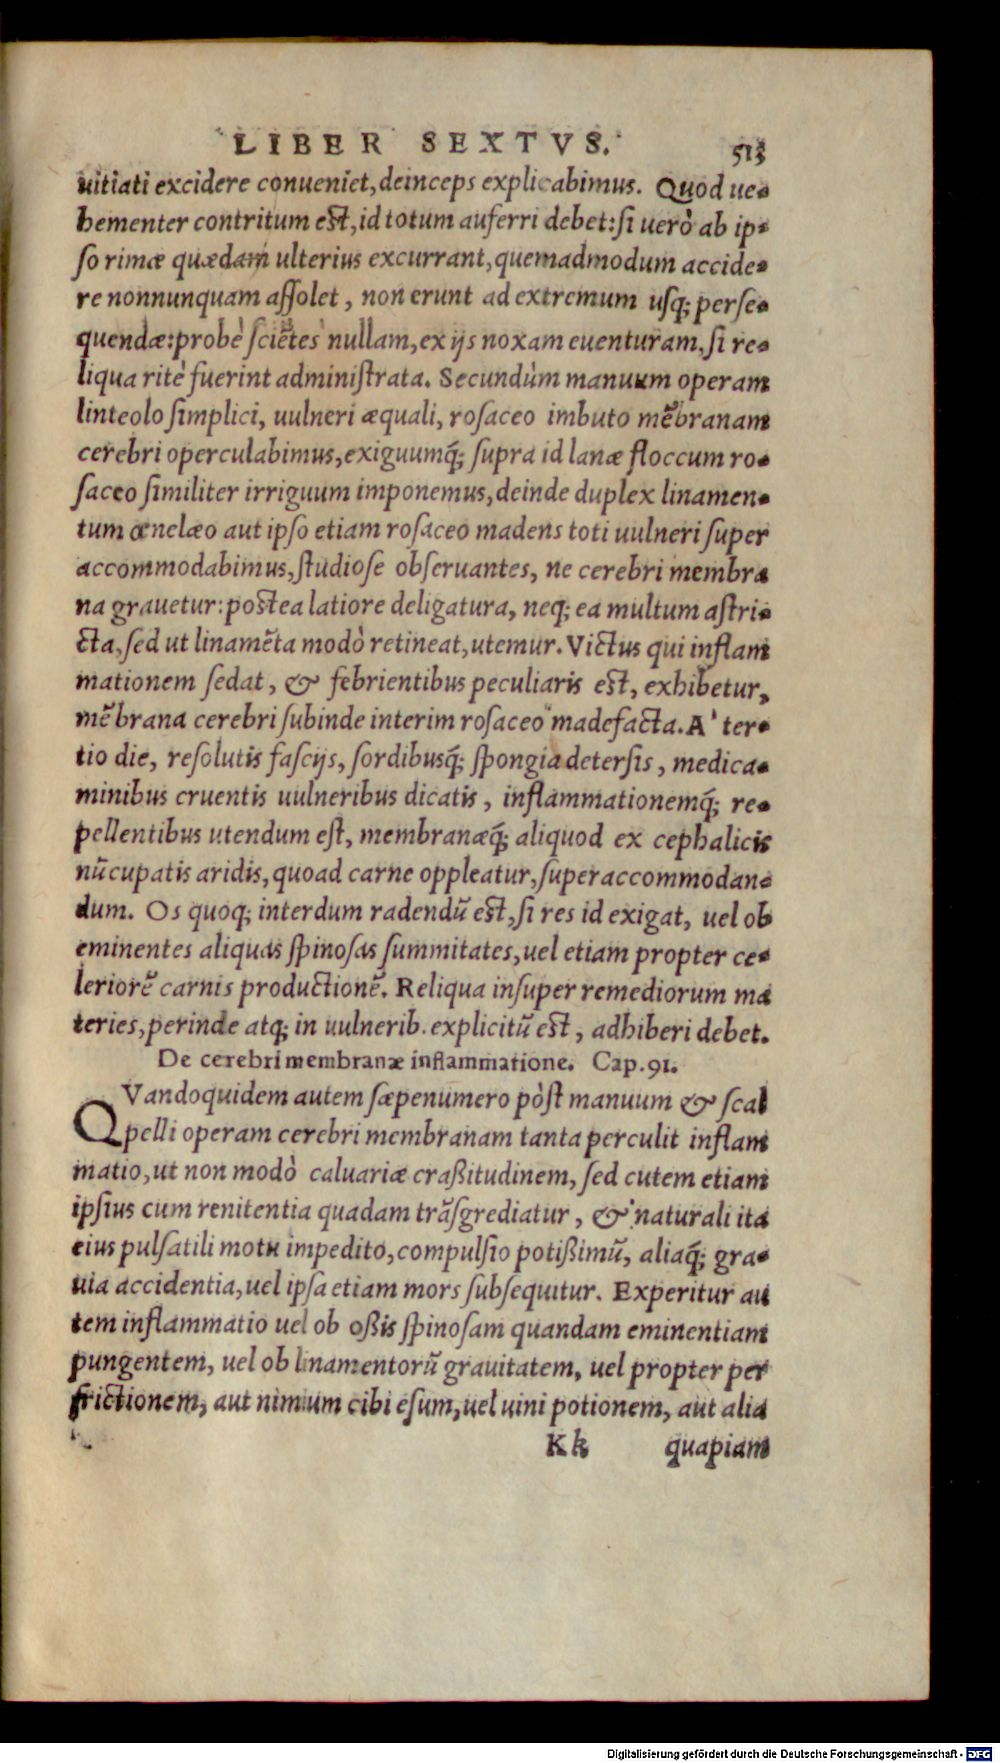 LIBER SEXTVS. 513
uitiati excidere conueniet, deinceps explicabimus. Quod ue-
hementer contritum est, id totum auferri debet: si uerò ab ip-
so rimæ quædam ulterius excurrant, quemadmodum accide-
re nonnunquam assolet, non erunt ad extremum usq; perse-
quendæ: probè sciẽtes nullam, ex ijs noxam euenturam, si re-
liqua ritè fuerint administrata. Secundùm manuum operam
linteolo simplici, uulneri æquali, rosaceo imbuto mẽbranam
cerebri operculabimus, exiguumq́; supra id lanæ floccum ro-
saceo similiter irriguum imponemus, deinde duplex linamen-
tum œnelæo aut ipso etiam rosaceo madens toti uulneri super
accommodabimus, studiose obseruantes, ne cerebri membra
na grauetur: postea latiore deligatura, neq; ea multum astri-
cta, sed ut linamẽta modò retineat, utemur. Victus qui inflam
mationem sedat, & febrientibus peculiaris est, exhibetur,
mẽbrana cerebri subinde interim rosaceo madefacta. A' ter-
tio die, resolutis fascijs, sordibusq́; spongia detersis, medica-
minibus cruentis uulneribus dicatis, inflammationemq́; re-
pellentibus utendum est, membranæq́; aliquod ex cephalicis
nũcupatis aridis, quoad carne oppleatur, superaccommodan-
dum. Os quoq; interdum radendũ est, si res id exigat, uel ob
eminentes aliquas spinosas summitates, uel etiam propter ce-
leriorẽ carnis productionẽ. Reliqua insuper remediorum ma
teries, perinde atq; in uulnerib. explicitũ est, adhiberi debet.
De cerebri membranæ inflammatione. Cap. 91.
QVandoquidem autem sæpenumero pòst manuum & scal
pelli operam cerebri membranam tanta perculit inflam
matio, ut non modò caluariæ craßitudinem, sed cutem etiam
ipsius cum renitentia quadam trãsgrediatur, & naturali ita
eius pulsatili motu impedito, compulsio potißimũ, aliaq́; gra-
uia accidentia, uel ipsa etiam mors subsequitur. Experitur au
tem inflammatio uel ob oßis spinosam quandam eminentiam
pungentem, uel ob linamentorũ grauitatem, uel propter per
frictionem, aut nimium cibi esum, uel uini potionem, aut alia
Kk quapiam
Digitalisierung gefördert durch die Deutsche Forschungsgemeinschaft - DFG